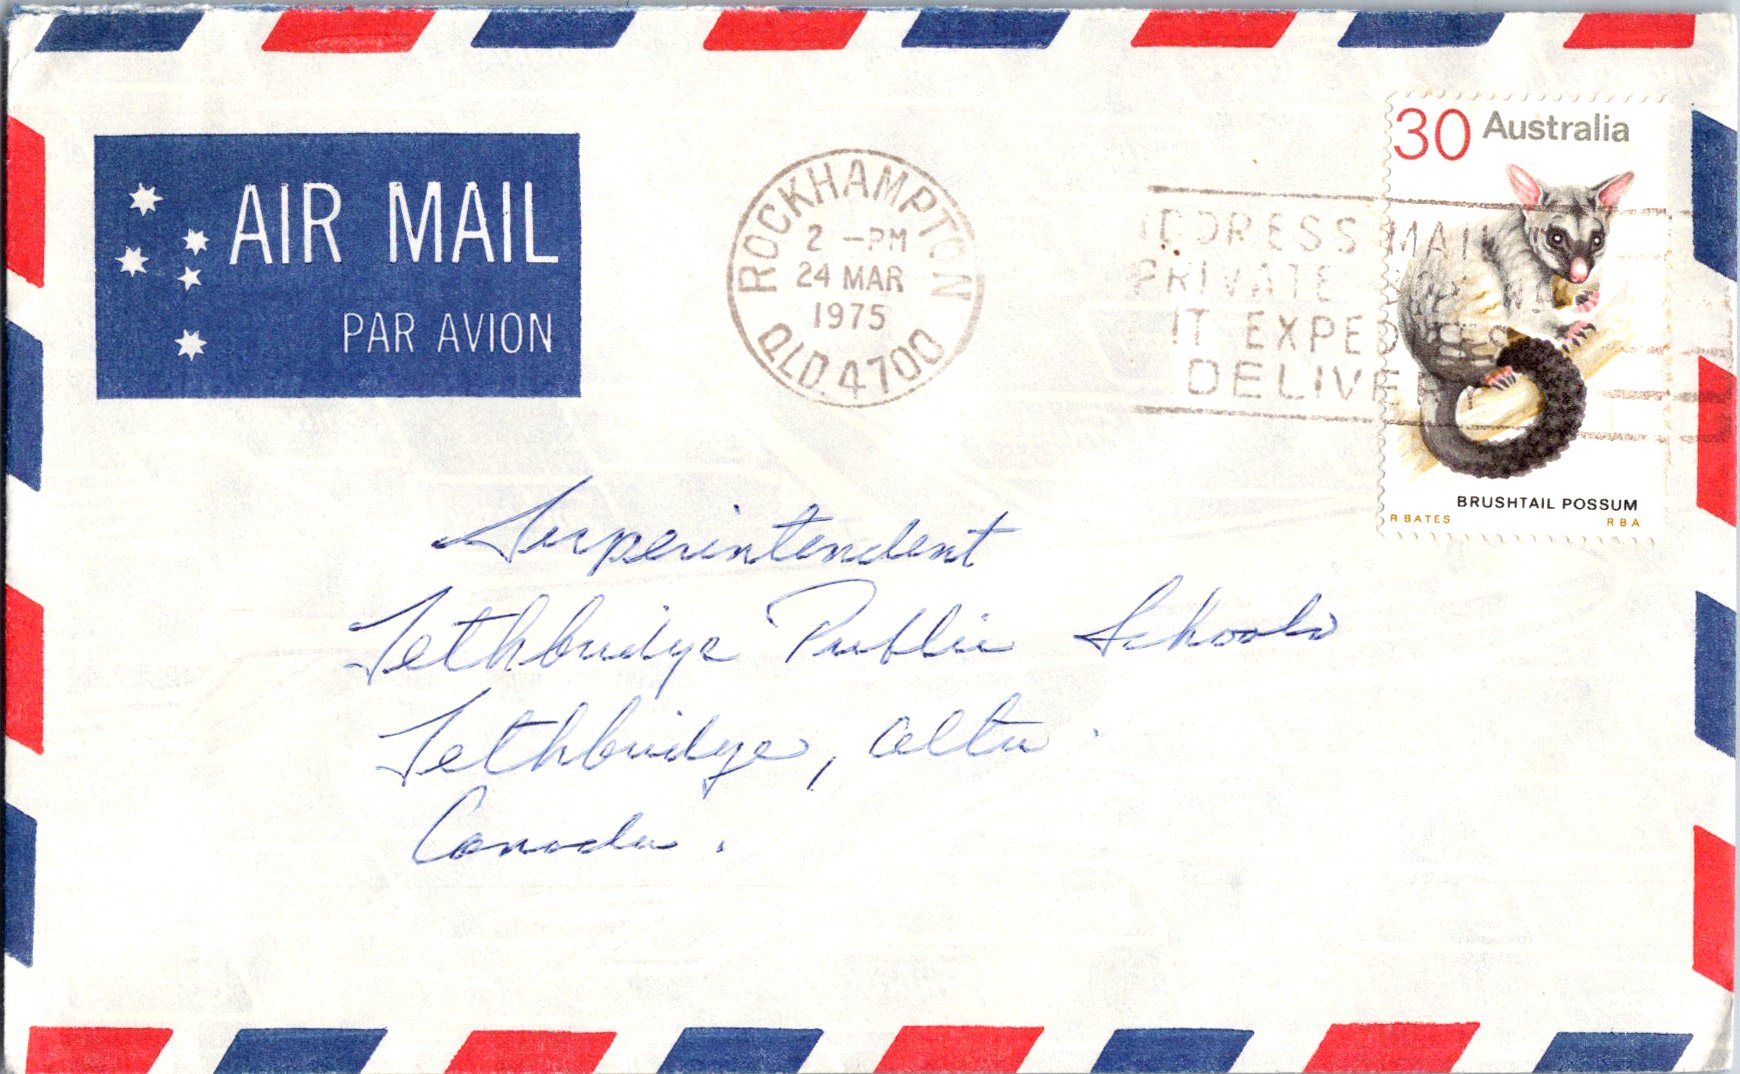 AIR MAIL
PAR AVION
ROCKHAMPTON
2 -PM
24 MAR
1975
QLD. 4700
ADDRESS MAIL
PRIVATE
IT EXPEDITES
DELIVERY
30 Australia
BRUSHTAIL POSSUM
R BATES RBA
Superintendent
Lethbridge Public Schools
Lethbridge, Alta.
Canada.